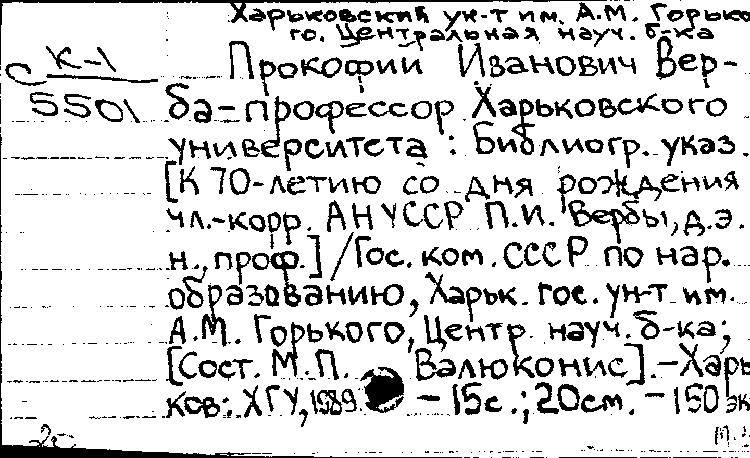 Харьковский ун-т им. А.М. Горько
го. Центральная науч. б-ка
К-1
5501
Прокофий Иванович Вер-
ба-профессор Харьковского
университета : Библиогр. указ.
[К 70-летию со дня рождения
чл.-корр. АН УССР П.И. Вербы, д.э.
н., проф.] / Гос. ком. СССР по нар.
образованию, Харьк. гос. ун-т им.
А.М. Горького, Центр. науч. б-ка;
[Сост. М.П. Валюконис]. - Харь
ков: ХГУ, 1989. - 15с.; 20см. - 150 эк